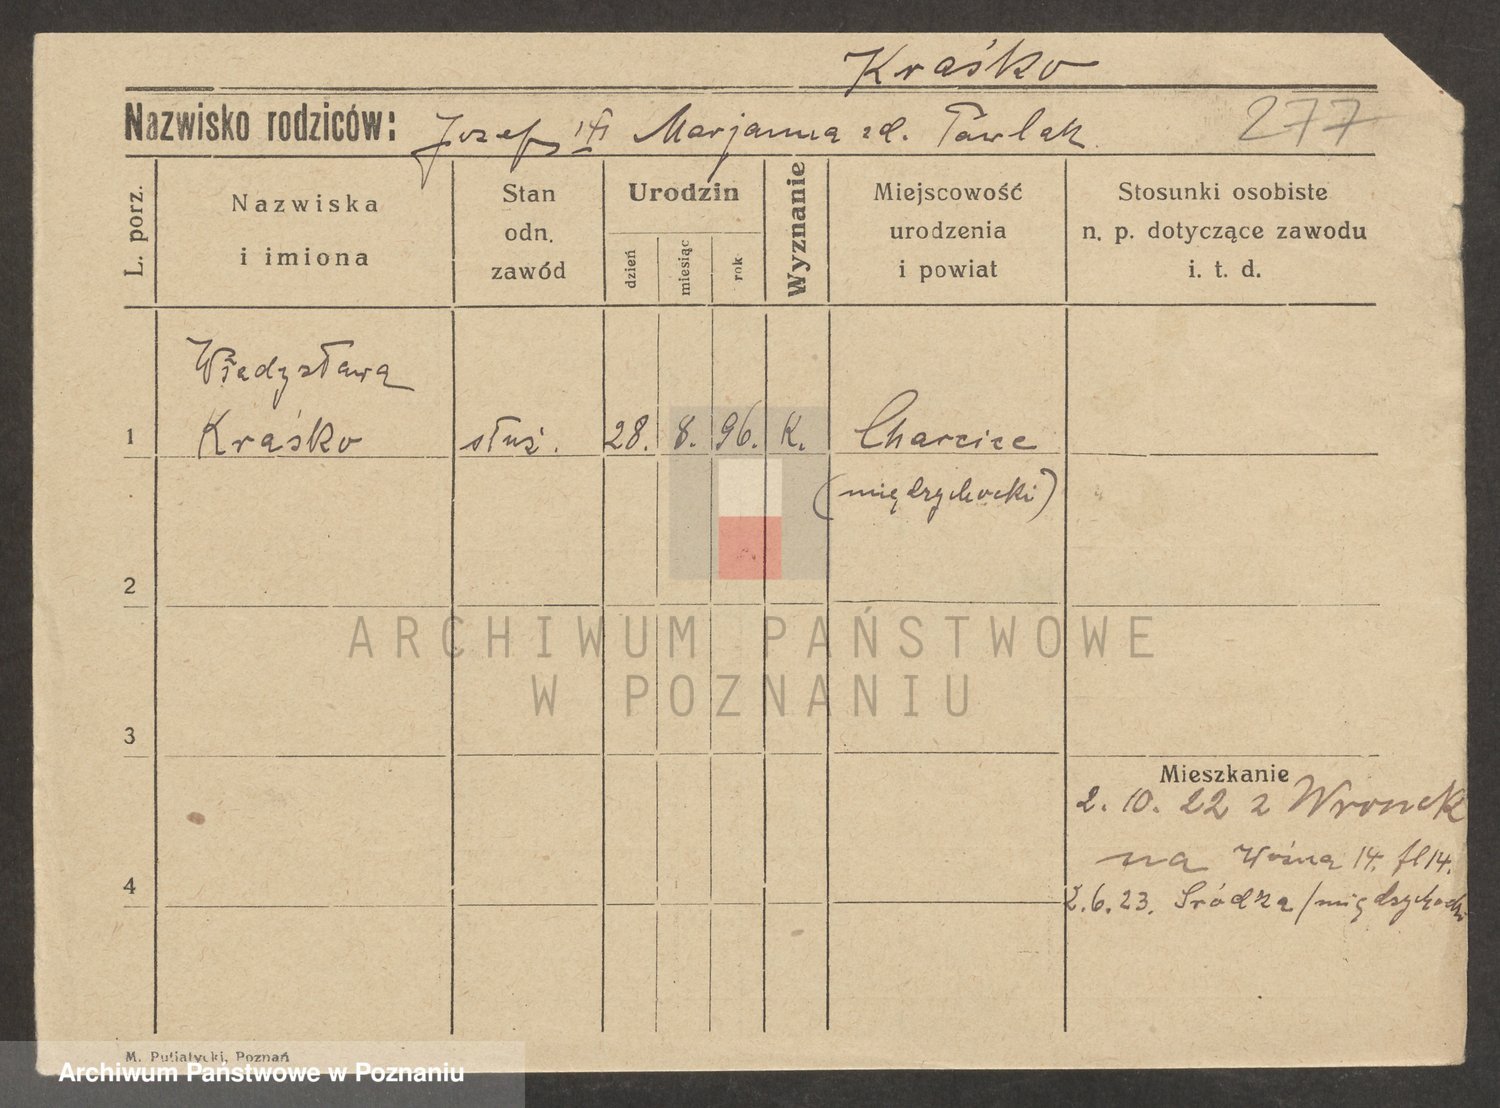 Kraśko
Nazwisko rodziców: Jozef i Marjanna zd. Pawlak
277
L. porz.
Nazwiska
i imiona
Stan
odn.
zawód
Urodzin
dzień
miesiąc
rok
Wyznanie
Miejscowość
urodzenia
i powiat
Stosunki osobiste
n. p. dotyczące zawodu
i. t. d.
Władysława
1 Kraśko służ. 28. 8. 96. K. Charcice
(międzychocki)
2
ARCHIWUM PAŃSTWOWE
W POZNANIU
3
Mieszkanie
2. 10. 22 z Wronek
na Woźna 14. fl 14.
4
2.6.23. Śródka /międzychocki
M. Putiatycki, Poznań
Archiwum Państwowe w Poznaniu